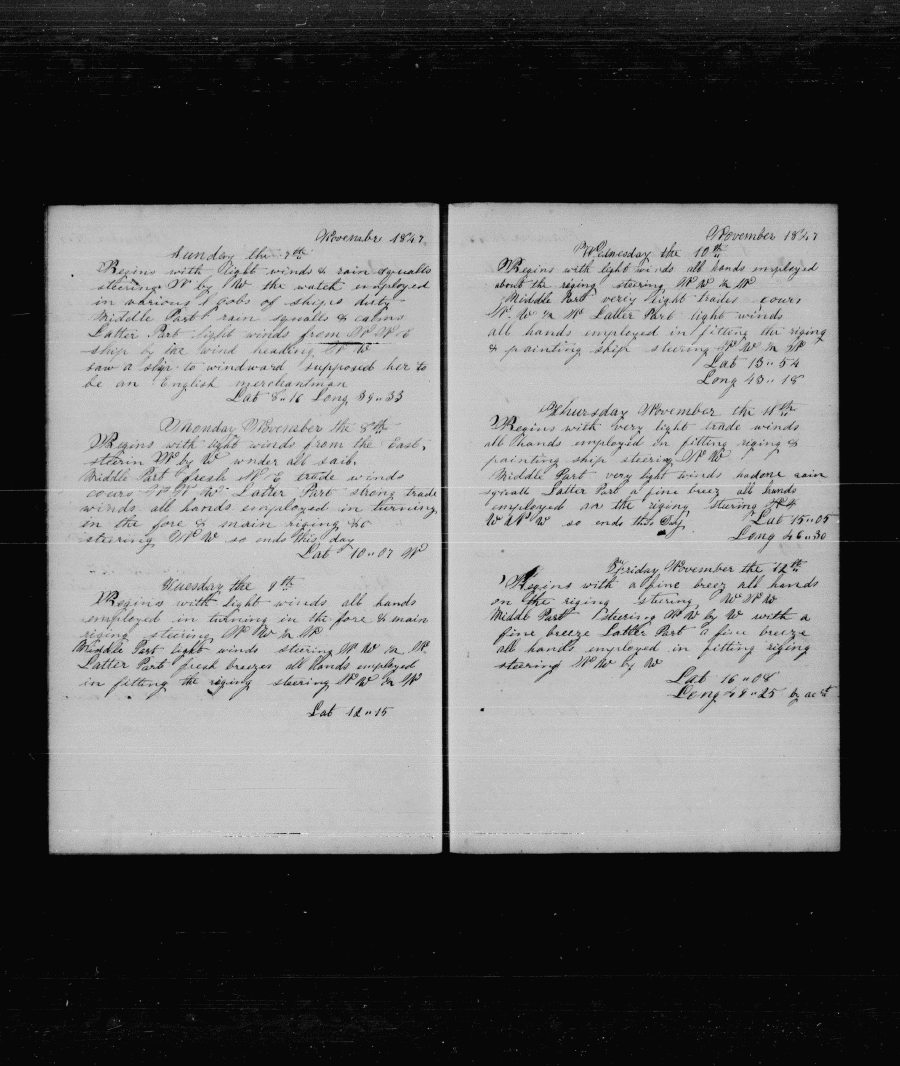 November 1847
Sunday the 7th
Begins with light winds & rain squalls
steering N by W the watch employed
in various jobs of ships duty
Middle Part rain squalls & calms
Latter Part light winds from N N E
ship by the wind heading N W
saw a ship to windward supposed her to
be an English merchantman
Lat 8 " 16 Long 39 " 33
Monday November the 8th
Begins with light winds from the East,
steerin N by W under all sail.
Middle Part fresh N E trade winds
cours N N W Latter Part strong trade
winds all hands employed in turning
in the fore & main riging &c
steering N W so ends this day
Lat 10 " 07 N
Tuesday the 9th
Begins with light winds all hands
employed in turning in the fore & main
riging steering N W N
Middle Part light winds steering N W N
Latter Part fresh breezes all hands employed
in fitting the riging steering N W N
Lat 12 " 15
November 1847
Wednesday the 10th
Begins with light winds all hands employed
about the riging steering N W N
Middle Part very light trades cours
N. W N Latter Part light winds
all hands employed in fitting the riging
& painting ship steering N W N
Lat 13 " 54
Long 43 " 18
Thursday November the 11th
Begins with very light trade winds
all hands employed in fitting riging &
painting ship steering N W
Middle Part very light winds rain
squall Latter Part a fine breez all hands
employed on the riging steering
W N W so ends this Day Lat 15 " 05
Long 46 " 30
Friday November the 12th
Begins with a fine breez all hands
on the riging steering W N W
Middal Part steering N W by W with a
fine breeze Latter Part a fine breeze
all hands employed in fitting riging
steering N W by W
Lat 16 " 08
Long 48 " 25 by act